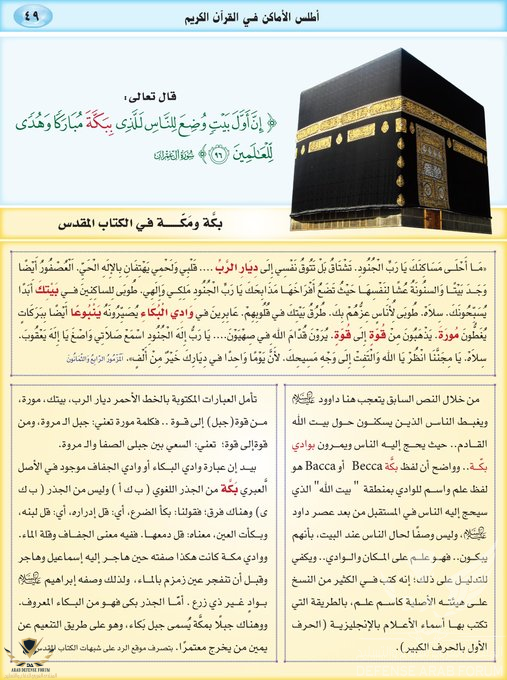 أطلس الأماكن في القرآن الكريم
٤٩
قال تعالى:
﴿ إِنَّ أَوَّلَ بَيْتٍ وُضِعَ لِلنَّاسِ لَلَّذِى بِبَكَّةَ مُبَارَكًا وَهُدًى
لِّلْعَالَمِينَ ﴿٩٦﴾ ﴾ سُورَةُ آلِ عِمْرَانَ
بكَّة ومَكّـــة في الكتاب المقدس
«مَـا أَحْلَـى مَسَاكِنَـكَ يَا رَبَّ الْجُنُودِ. تَشْتَاقُ بَلْ تَتُوقُ نَفْسِي إِلَى دِيَارِ الرَّبِّ .... قَلْبِي وَلَحْمِي يَهْتِفَانِ بِالإِلهِ الْحَيِّ. الْعُصْفُورُ أَيْضًا
وَجَدَ بَيْتًا وَالسُّنُونَةُ عُشًّا لِنَفْسِهَا حَيْثُ تَضَعُ أَفْرَاخَهَا مَذَابِحَكَ يَا رَبَّ الْجُنُودِ مَلِكِي وَإِلهِي. طُوبَى لِلسَّاكِنِينَ فِـي بَيْتِكَ أَبَدًا
يُسَبِّحُونَكَ. سِلاَهْ. طُوبَى لأُنَاسٍ عِزُّهُمْ بِكَ. طُرُقُ بَيْتِكَ فِي قُلُوبِهِمْ. عَابِرِينَ فِي وَادِي الْبُكَاءِ يُصَيِّرُونَهُ يَنْبُوعًا أَيْضًا بِبَرَكَاتٍ
يُغَطُّونَ مُورَةَ. يَذْهَبُونَ مِنْ قُوَّةٍ إِلَى قُوَّةٍ. يُرَوْنَ قُدَّامَ اللهِ فِي صِهْيَوْنَ.... يَا رَبُّ إِلهَ الْجُنُودِ اسْمَعْ صَلاَتِي وَاصْغَ يَا إِلهَ يَعْقُوبَ.
سِلاَهْ. يَا مِجَنَّنَا انْظُرْ يَا اللهُ وَالْتَفِتْ إِلَى وَجْهِ مَسِيحِكَ. لأَنَّ يَوْمًا وَاحِدًا فِي دِيَارِكَ خَيْرٌ مِنْ أَلْفٍ». اَلْمَزْمُورُ الرَّابِعُ وَالثَّمَانُونَ
من خلال النص السابق يتعجب هنا داوود ﷺ
ويغبط الناس الذين يسكنون حول بيت الله
القادم.. حيث يحج إليه الناس ويمرون بوادي
بكّة.. وواضح أن لفظ بكَّة Becca أو Bacca هو
لفظ علم واسم للوادي بمنطقة "بيت الله" الذي
سيحج إليه الناس في المستقبل من بعد عصر داود
ﷺ، وليس وصفًا لحال الناس عند البيت، بأنهم
يبكون.. فهو علم على المكان والوادي.. ويكفي
للتدليل على ذلك؛ إنه كتب في الكثير من النسخ
على هيئته الأصلية كاسم علم، بالطريقة التي
تكتب بها أسماء الأعلام بالإنجليزية (الحرف
الأول بالحرف الكبير).
تأمل العبارات المكتوبة بالخط الأحمر ديار الرب، بيتك، مورة،
من قوة(جبل) إلى قوة .. فكلمة مورة تعني: جبل الـ مروة، ومن
قوة إلى قوة؛ تعني: السعي بين جبلى الصفا والـ مروة.
بيد إن عبارة وادي البكاء أو وادي الجفاف موجود في الأصل
العبري بَكَّة من الجذر اللغوي ( ب ك أ ) وليس من الجذر ( ب ك
ى) وهناك فرق؛ فقولنا: بكأ الضرع، أي: قل إدراره، أي: قل لبنه،
وبكأت العين، معناه: قل دمعها. ففيه معنى الجفاف وقلة الماء.
ووادي مكة كانت هكذا صفته حين هاجر إليه إسماعيل وهاجر
وقبل أن تتفجر عين زمزم بالماء، ولذلك وصفه إبراهيم ﷺ
بوادٍ غير ذي زرع . أمّا الجذر بكى فهو من البكاء المعروف.
ووهناك جبلًا بمكَّة يُسمى جبل بَكاء، وهو على طريق التنعيم عن
يمين من يخرج معتمرًا. بتصرف موقع الرد على شبهات الكتاب المقدس
ARAB DEFENSE FORUM